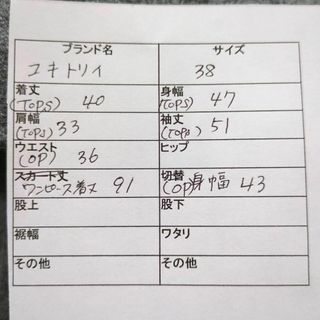 ブランド名 サイズ
ユキトリイ 38
着丈 身幅
(TOPS) 40 (TOPS) 47
肩幅 袖丈
(TOPS) 33 (TOPS) 51
ウエスト ヒップ
(OP) 36
スカート丈 切替
ワンピース着丈 91 (OP)身幅 43
股上 股下
裾幅 ワタリ
その他 その他